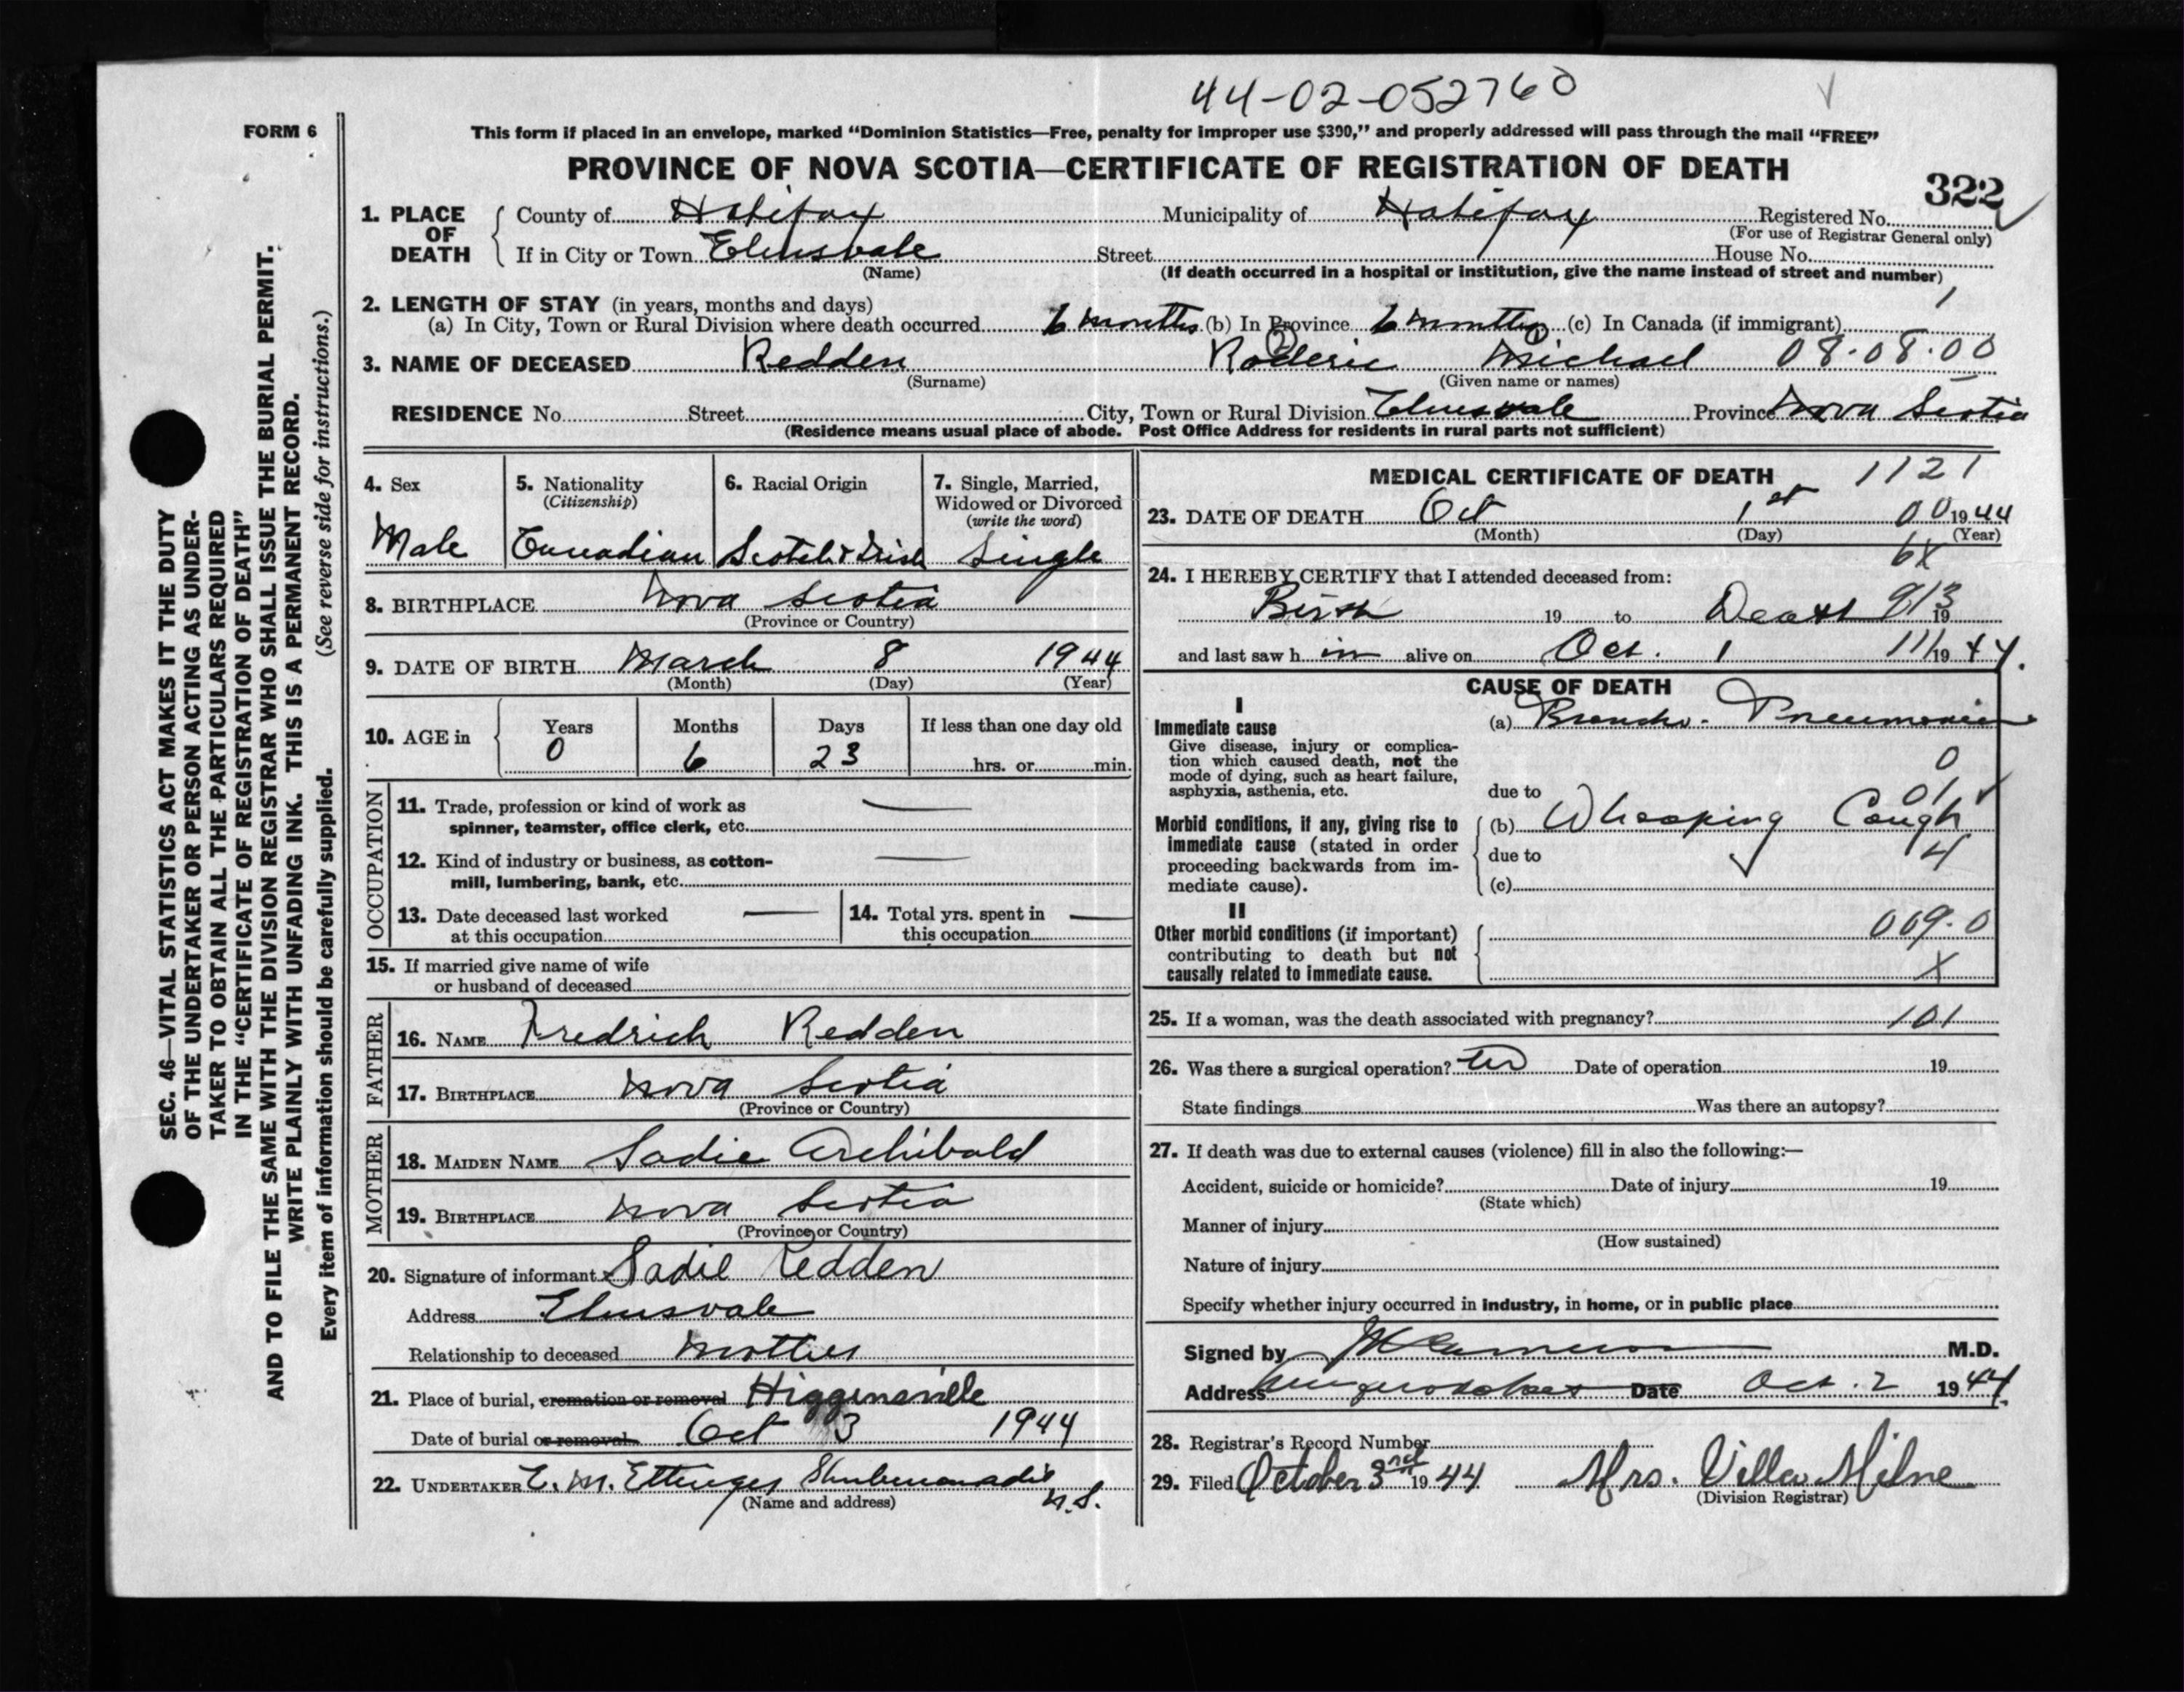 44-02-052760
FORM 6
This form if placed in an envelope, marked “Dominion Statistics—Free, penalty for improper use $300,” and properly addressed will pass through the mail “FREE”
PROVINCE OF NOVA SCOTIA—CERTIFICATE OF REGISTRATION OF DEATH
322
1. PLACE OF DEATH
County of Halifax Municipality of Halifax Registered No.
(For use of Registrar General only)
If in City or Town Elmsvale Street House No.
(Name) (If death occurred in a hospital or institution, give the name instead of street and number)
2. LENGTH OF STAY (in years, months and days) 1
(a) In City, Town or Rural Division where death occurred 6 months (b) In Province 6 months (c) In Canada (if immigrant)
3. NAME OF DECEASED Redden Roderic (2) Michael (1) 08·08·00
(Surname) (Given name or names)
RESIDENCE No. Street City, Town or Rural Division Elmsvale Province Nova Scotia
(Residence means usual place of abode. Post Office Address for residents in rural parts not sufficient)
4. Sex
Male
5. Nationality
(Citizenship)
Canadian
6. Racial Origin
Scotch & Irish
7. Single, Married,
Widowed or Divorced
(write the word)
Single
8. BIRTHPLACE Nova Scotia
(Province or Country)
9. DATE OF BIRTH March 8 1944
(Month) (Day) (Year)
10. AGE in Years Months Days If less than one day old
0 6 23 hrs. or min.
OCCUPATION
11. Trade, profession or kind of work as
spinner, teamster, office clerk, etc. —
12. Kind of industry or business, as cotton-
mill, lumbering, bank, etc. —
13. Date deceased last worked
at this occupation —
14. Total yrs. spent in
this occupation —
15. If married give name of wife
or husband of deceased
FATHER
16. NAME Fredrich Redden
17. BIRTHPLACE Nova Scotia
(Province or Country)
MOTHER
18. MAIDEN NAME Sadie Archibald
19. BIRTHPLACE Nova Scotia
(Province or Country)
20. Signature of informant x Sadie Redden
Address Elmsvale
Relationship to deceased Mother
21. Place of burial, cremation or removal Higginsville
Date of burial or removal Oct 3 1944
22. UNDERTAKER E. M. Ettinger Shubenacadie
(Name and address) N.S.
MEDICAL CERTIFICATE OF DEATH 1121
23. DATE OF DEATH Oct 1st 00 1944
(Month) (Day) (Year)
6X
24. I HEREBY CERTIFY that I attended deceased from:
Birth 19 to Death 913 19
and last saw h im alive on Oct. 1 111 1944.
CAUSE OF DEATH
I
Immediate cause
Give disease, injury or complica-
tion which caused death, not the
mode of dying, such as heart failure,
asphyxia, asthenia, etc.
(a) Broncho-Pneumonia
0
due to
01
Morbid conditions, if any, giving rise to
immediate cause (stated in order
proceeding backwards from im-
mediate cause).
(b) Whooping Cough
due to 4
(c)
II
Other morbid conditions (if important)
contributing to death but not
causally related to immediate cause.
009.0
X
25. If a woman, was the death associated with pregnancy? 101
26. Was there a surgical operation? no Date of operation 19
State findings Was there an autopsy?
27. If death was due to external causes (violence) fill in also the following:—
Accident, suicide or homicide? Date of injury 19
(State which)
Manner of injury
(How sustained)
Nature of injury
Specify whether injury occurred in industry, in home, or in public place
Signed by M.D.
Address Date Oct. 2 1944.
28. Registrar's Record Number
29. Filed October 3rd 1944 Mrs. Villa Milne
(Division Registrar)
SEC. 46—VITAL STATISTICS ACT MAKES IT THE DUTY
OF THE UNDERTAKER OR PERSON ACTING AS UNDER-
TAKER TO OBTAIN ALL THE PARTICULARS REQUIRED
IN THE “CERTIFICATE OF REGISTRATION OF DEATH”
AND TO FILE THE SAME WITH THE DIVISION REGISTRAR WHO SHALL ISSUE THE BURIAL PERMIT.
WRITE PLAINLY WITH UNFADING INK. THIS IS A PERMANENT RECORD.
Every item of information should be carefully supplied. (See reverse side for instructions.)